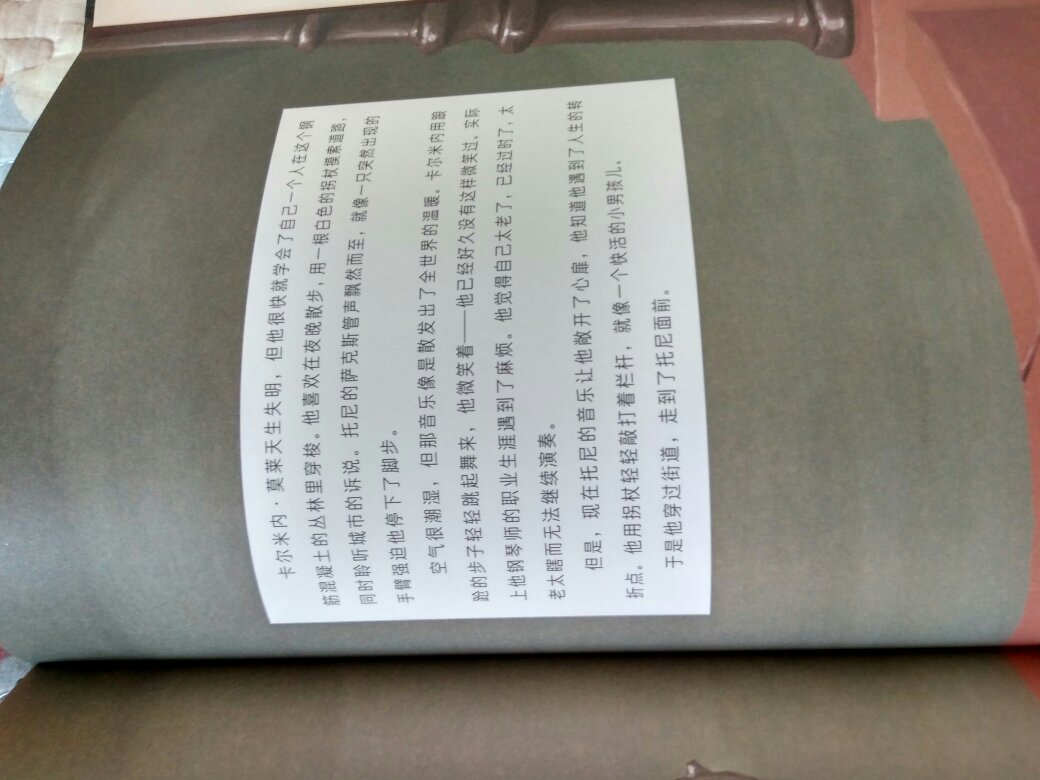 卡尔米内·莫莱天生失明，但他很快就学会了自己一个人在这个钢
筋混凝土的丛林里穿梭。他喜欢在夜晚散步，用一根白色的拐杖摸索道路，
同时聆听城市的诉说。托尼的萨克斯管声飘然而至，就像一只突然出现的
手臂强迫他停下了脚步。
空气很潮湿，但那音乐像是散发出了全世界的温暖。卡尔米内用踉
跄的步子轻轻跳起舞来，他微笑着——他已经好久没有这样微笑过。实际
上他钢琴师的职业生涯遇到了麻烦。他觉得自己太老了，已经过时了，太
老太瞎而无法继续演奏。
但是，现在托尼的音乐让他敞开了心扉，他知道他遇到了人生的转
折点。他用拐杖轻轻敲打着栏杆，就像一个快活的小男孩儿。
于是他穿过街道，走到了托尼面前。